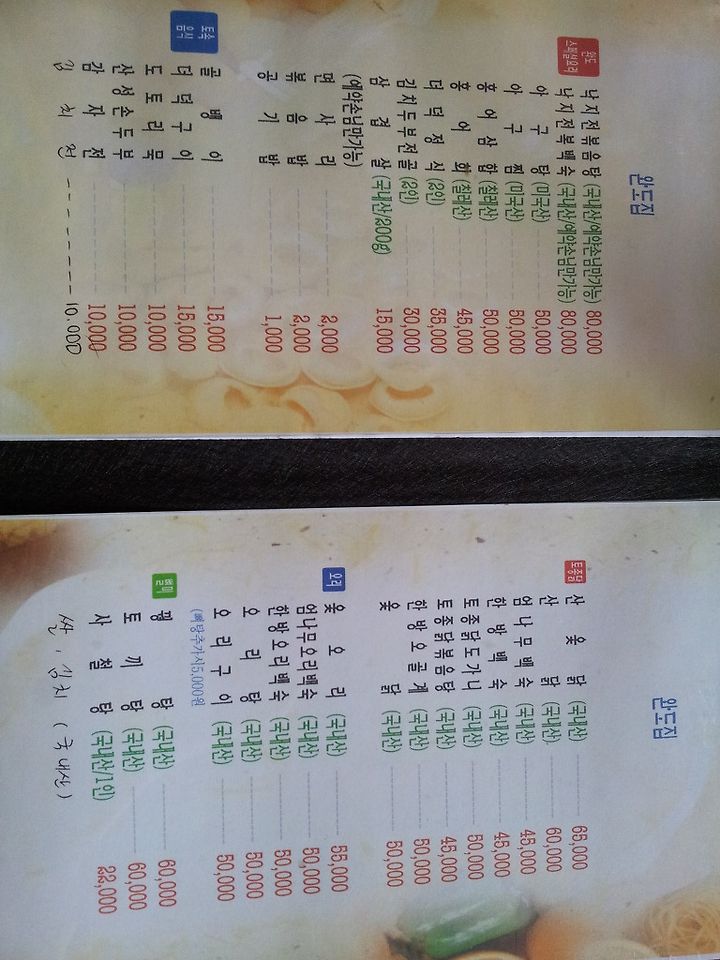 완도집
완도
스페셜요리
낙지전볶음탕 (국내산/예약손님만가능) 80,000
낙지전복백숙 (국내산/예약손님만가능) 80,000
아구탕 (미국산) 50,000
아구찜 (미국산) 50,000
홍어삼합 (칠레산) 50,000
홍어회 (칠레산) 45,000
더덕정식 (2인) 35,000
김치두부전골 (2인) 30,000
삼겹살 (국내산/200g) 15,000
(예약손님만가능)
면사리 2,000
볶음밥 2,000
공기밥 1,000
토속
음식
골뱅이 15,000
더덕구이 15,000
도토리묵 10,000
산성손두부 10,000
감자전 10,000
김치전 10.000
완도집
토종닭
산옻닭 (국내산) 65,000
산닭 (국내산) 60,000
엄나무백숙 (국내산) 45,000
한방백숙 (국내산) 45,000
토종닭도가니 (국내산) 50,000
토종닭볶음탕 (국내산) 45,000
한방오골계 (국내산) 50,000
옻닭 (국내산) 50,000
오리
옻오리 (국내산) 55,000
엄나무오리백숙 (국내산) 50,000
한방오리백숙 (국내산) 50,000
오리탕 (국내산) 50,000
오리구이 (국내산) 50,000
(뼈탕추가시5,000원
별미
꿩탕 (국내산) 60,000
토끼탕 (국내산) 60,000
사철탕 (국내산/1인) 22,000
쌀, 김치 (국내산)